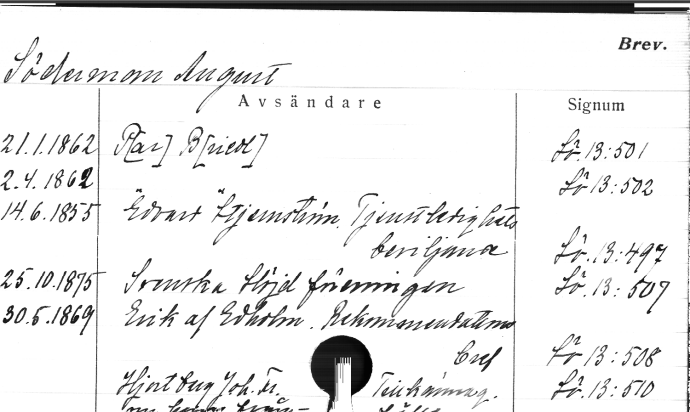 Brev.
Söderman August
Avsändare Signum
21.1.1862 P[ar] B[ricol] Sö. 13:501
2.4.1862 " " Sö 13:502
14.6.1855 Edvard Stjernström. Tjenstledighets
beviljande Sö. 13:497
25.10.1875 Svenska Slöjdföreningen Sö. 13:507
30.5.1869 Erik af Edholm. Rekommendations
bref Sö 13:508
Hjortberg Joh. Fr. Sö. 13:510